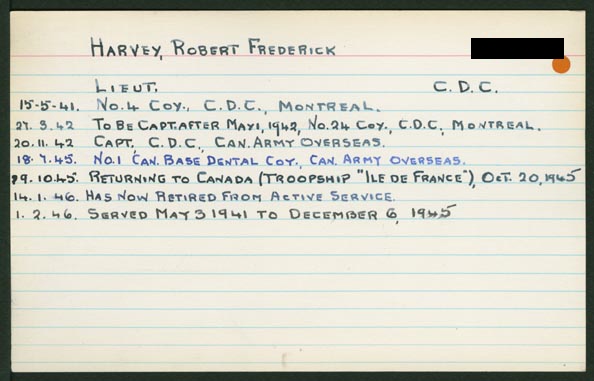 HARVEY, ROBERT FREDERICK
LIEUT. C. D. C.
15-5-41. No. 4 COY., C.D.C., MONTREAL.
27. 3. 42 TO BE CAPT. AFTER MAY 1, 1942, No. 24 COY., C.D.C., MONTREAL.
20. 11. 42 CAPT, C.D.C., CAN. ARMY OVERSEAS.
18. 7. 45. No. 1 CAN. BASE DENTAL COY., CAN. ARMY OVERSEAS.
29. 10. 45. RETURNING TO CANADA (TROOPSHIP "ILE DE FRANCE"), OCT. 20, 1945
14. 1. 46. HAS NOW RETIRED FROM ACTIVE SERVICE.
1. 2. 46. SERVED MAY 3 1941 TO DECEMBER 6, 1945